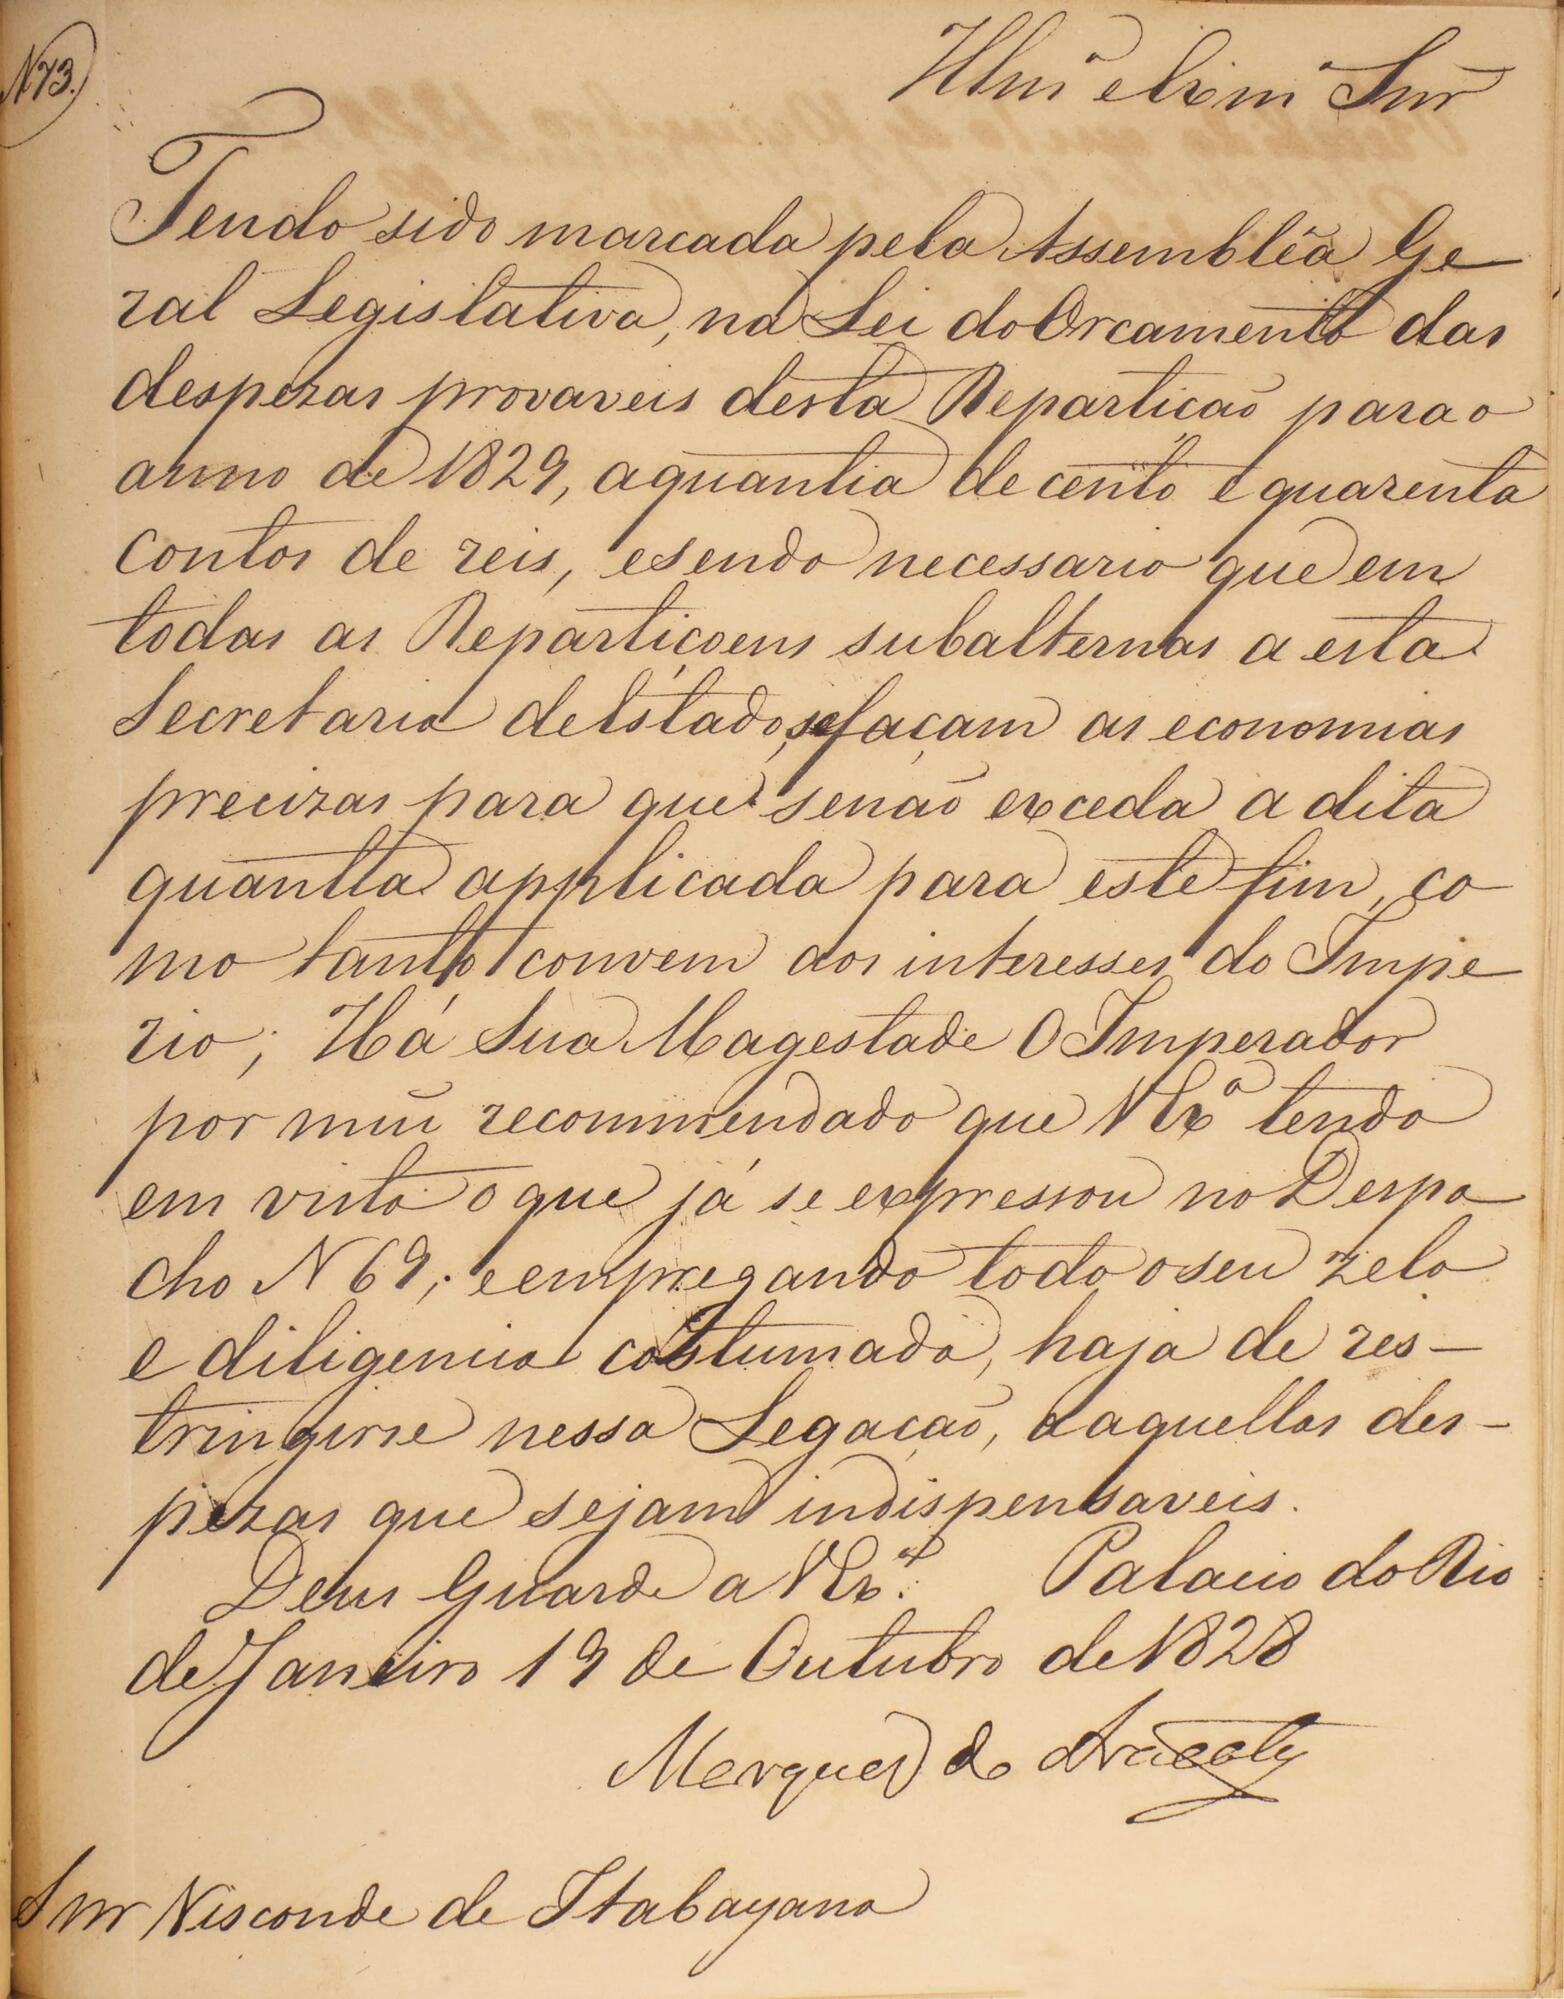 N 73.
Illmo e Exmo Snr
Tendo sido marcada pela Assemblêa Ge
ral Legislativa, na Lei do Orcamento das
despezas provaveis desta Repartição para o
anno de 1829, a quantia de cento e quarenta
contos de reis, e sendo necessario que em
todas as Repartiçoens subalternas a esta
Secretaria de Estado, se façam as economias
precizas para que se não exceda a dita
quantia applicada para este fim, co
mo tanto convem aos interesses do Impe
rio; Há Sua Magestade O Imperador
por mui recommendado que V Exa tendo
em vista o que já se expressou no Despa
cho N 69, e empregando todo o seu zelo
e diligencia costumada, haja de res-
tringirse nessa Legação, a aquellas des-
pezas que sejam indispensaveis.
Deus Guarde a V Exa. Palacio do Rio
de Janeiro 19 de Outubro de 1828
Marquez do Aracaty
Snr Visconde de Itabayana